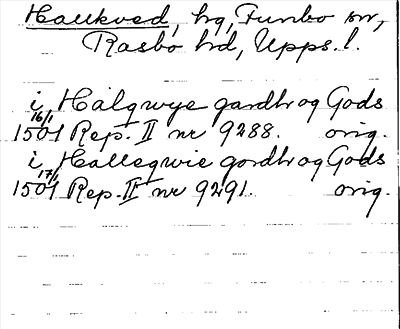 Hallkved, hg, Funbo sn,
Rasbo hd, Upps. l.
i Hálgwye gardh og Gods
16/1 1501 Rep. II nr 9288. orig.
i Hallegwie gordh og Gods
17/1 1501 Rep. II nr 9291. orig.